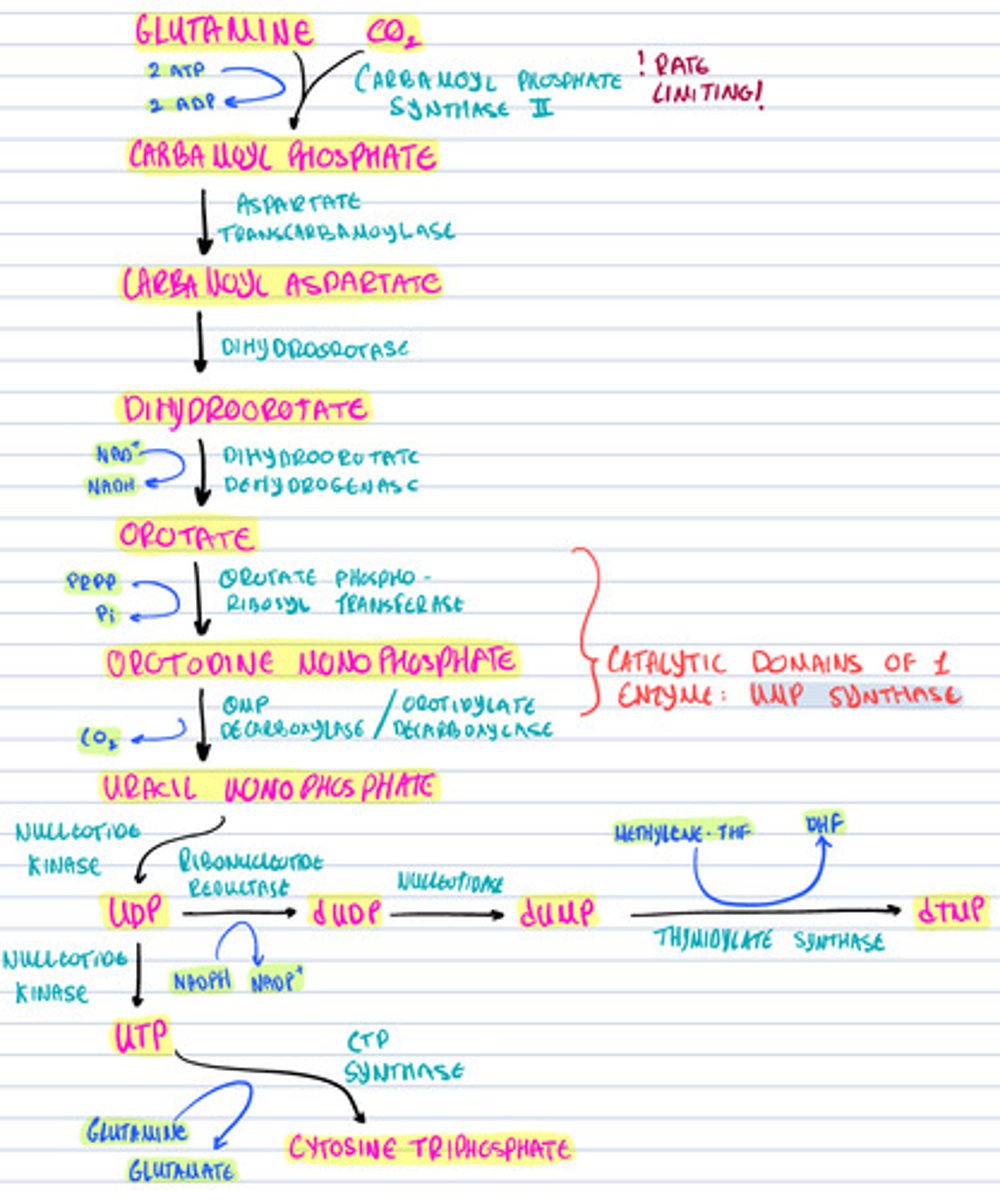 GLUTAMINE CO2
2 ATP
2 ADP
CARBAMOYL PHOSPHATE
SYNTHASE II
! RATE
LIMITING!
CARBAMOYL PHOSPHATE
ASPARTATE
TRANSCARBAMOYLASE
CARBAMOYL ASPARTATE
DIHYDROOROTASE
DIHYDROOROTATE
NAD+
NADH
DIHYDROOROTATE
DEHYDROGENASE
OROTATE
PRPP
Pi
OROTATE PHOSPHO-
RIBOSYL TRANSFERASE
OROTODINE MONOPHOSPHATE
CATALYTIC DOMAINS OF 1
ENZYME: UMP SYNTHASE
CO2
OMP
DECARBOXYLASE / OROTIDYLATE
DECARBOXYLASE
URACIL MONOPHOSPHATE
NUCLEOTIDE
KINASE
RIBONUCLEOTIDE
REDUCTASE
NUCLEOTIDASE
METHYLENE-THF
DHF
UDP dUDP dUMP dTMP
THYMIDYLATE SYNTHASE
NUCLEOTIDE
KINASE
NADPH NADP+
UTP
CTP
SYNTHASE
GLUTAMINE
GLUTAMATE
CYTOSINE TRIPHOSPHATE